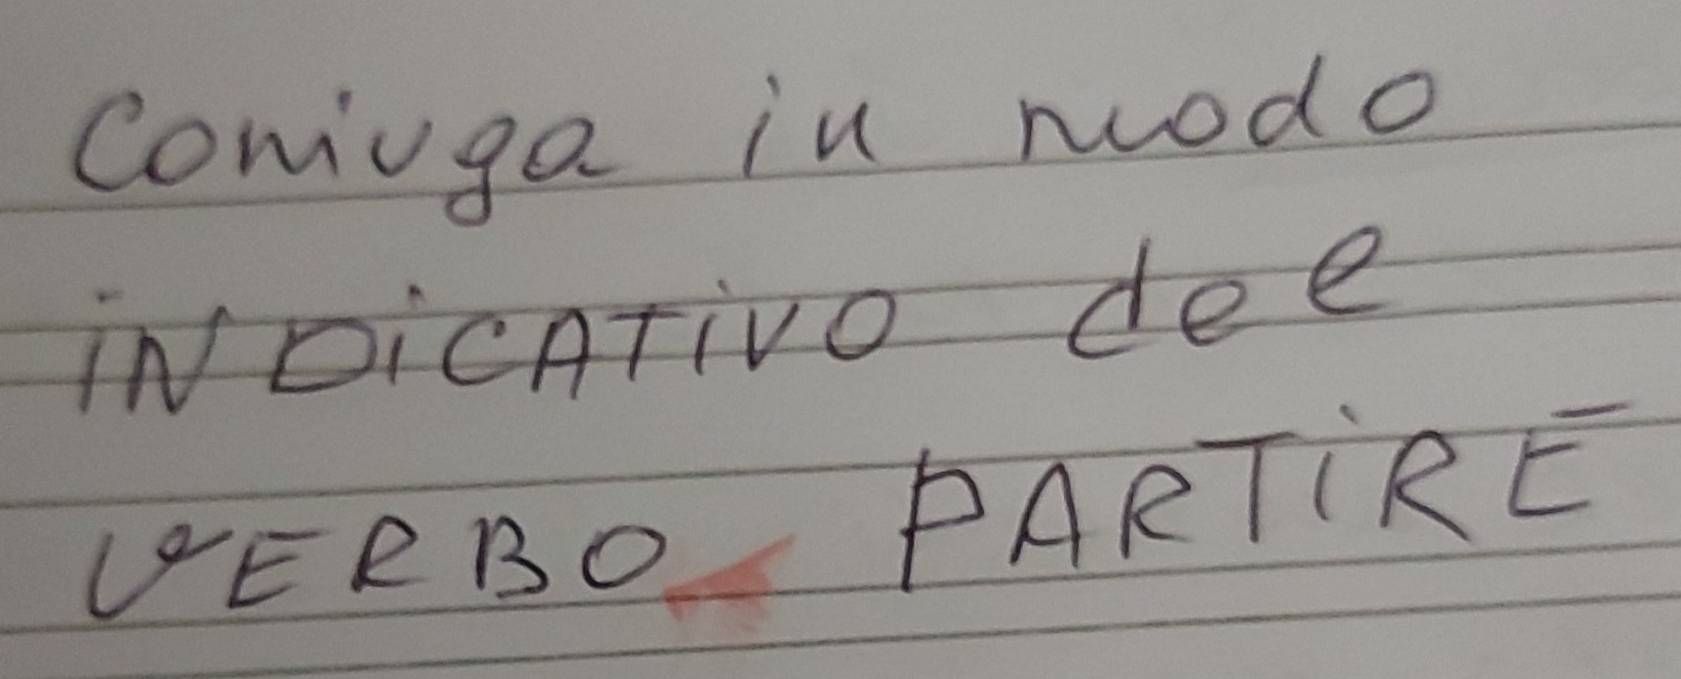 Coniuga in modo
iNDiCATiVO del
VERBO PARTiRE